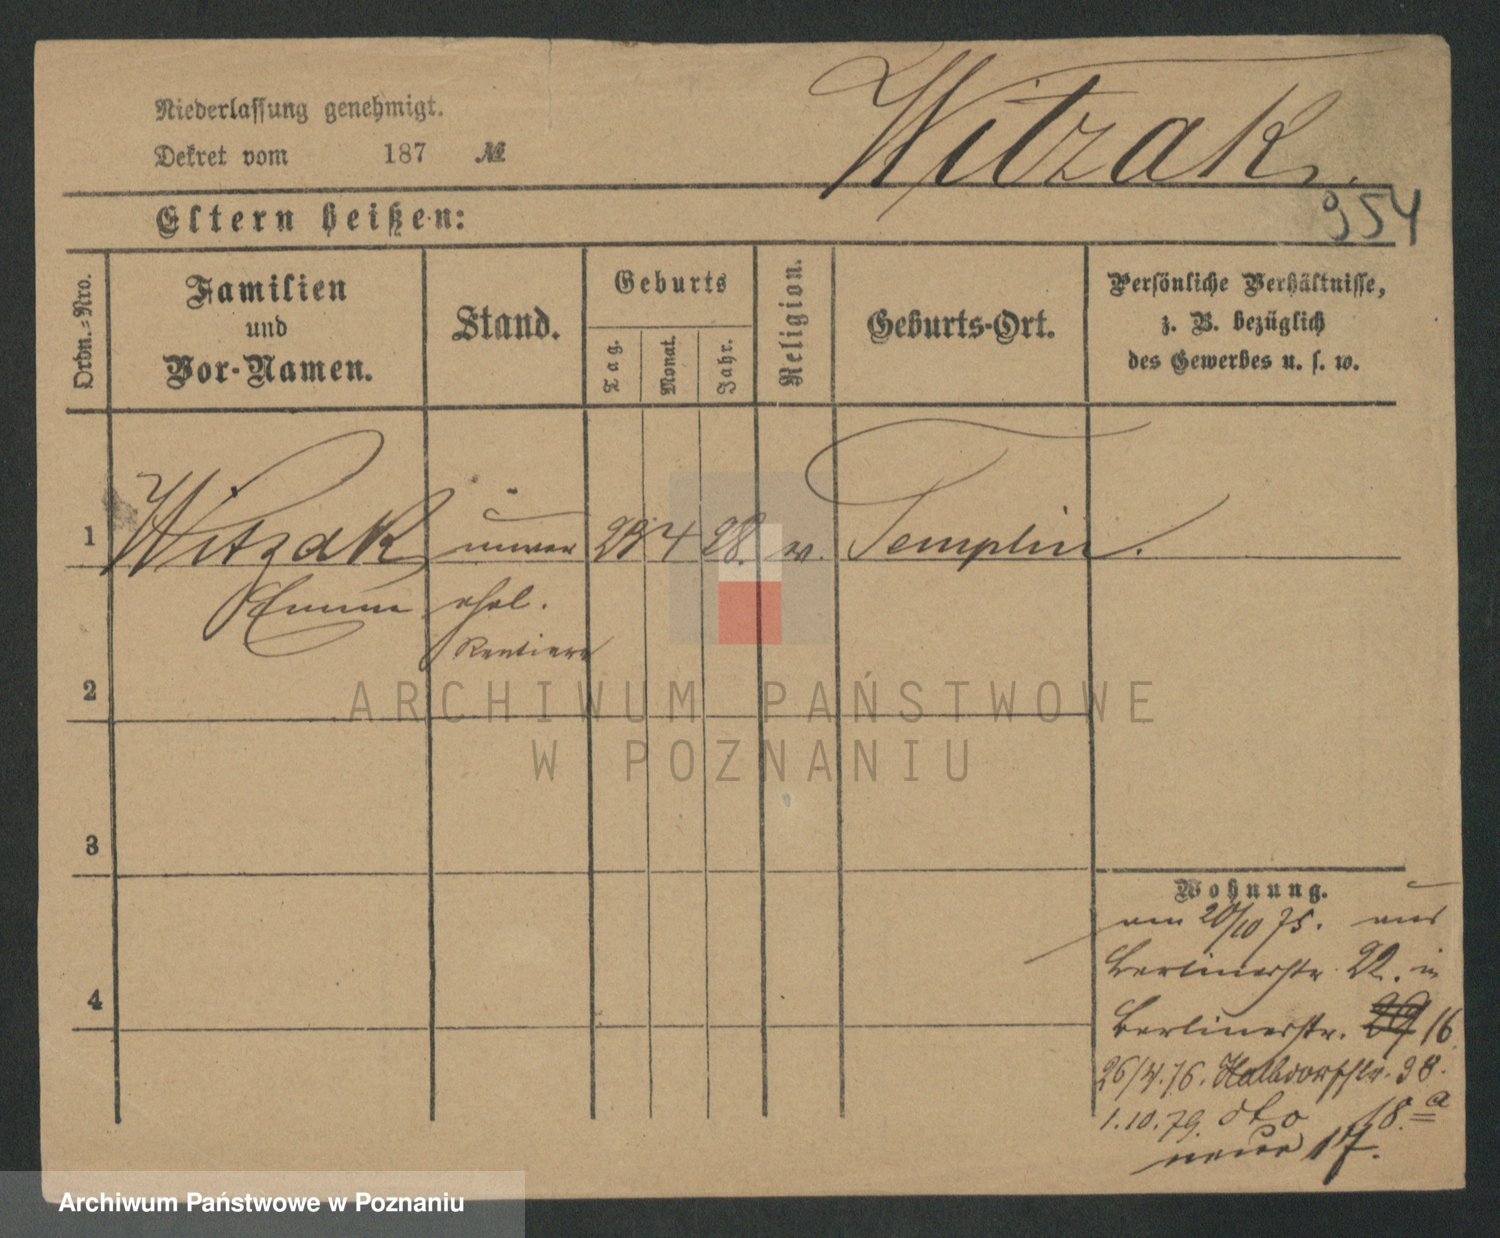 Niederlassung genehmigt.
Dekret vom 187 №
Witzak.
954
Eltern heißen:
Ordn.-Nro.
Familien
und
Vor-Namen.
Stand.
Geburts
Tag.
Monat.
Jahr.
Religion.
Geburts-Ort.
Persönliche Verhältnisse,
z. B. bezüglich
des Gewerbes u. s. w.
1 Witzak unver 4 28. Templin.
Emma ehel.
Rentiere
2
ARCHIWUM PAŃSTWOWE
W POZNANIU
3
Wohnung.
am 20/10 75. aus
Berlinerstr. 22. in
Berlinerstr. 16
4
26/4.76. Halbdorfstr. 38.
1.10.79. dto 18.a
neue 17.
Archiwum Państwowe w Poznaniu